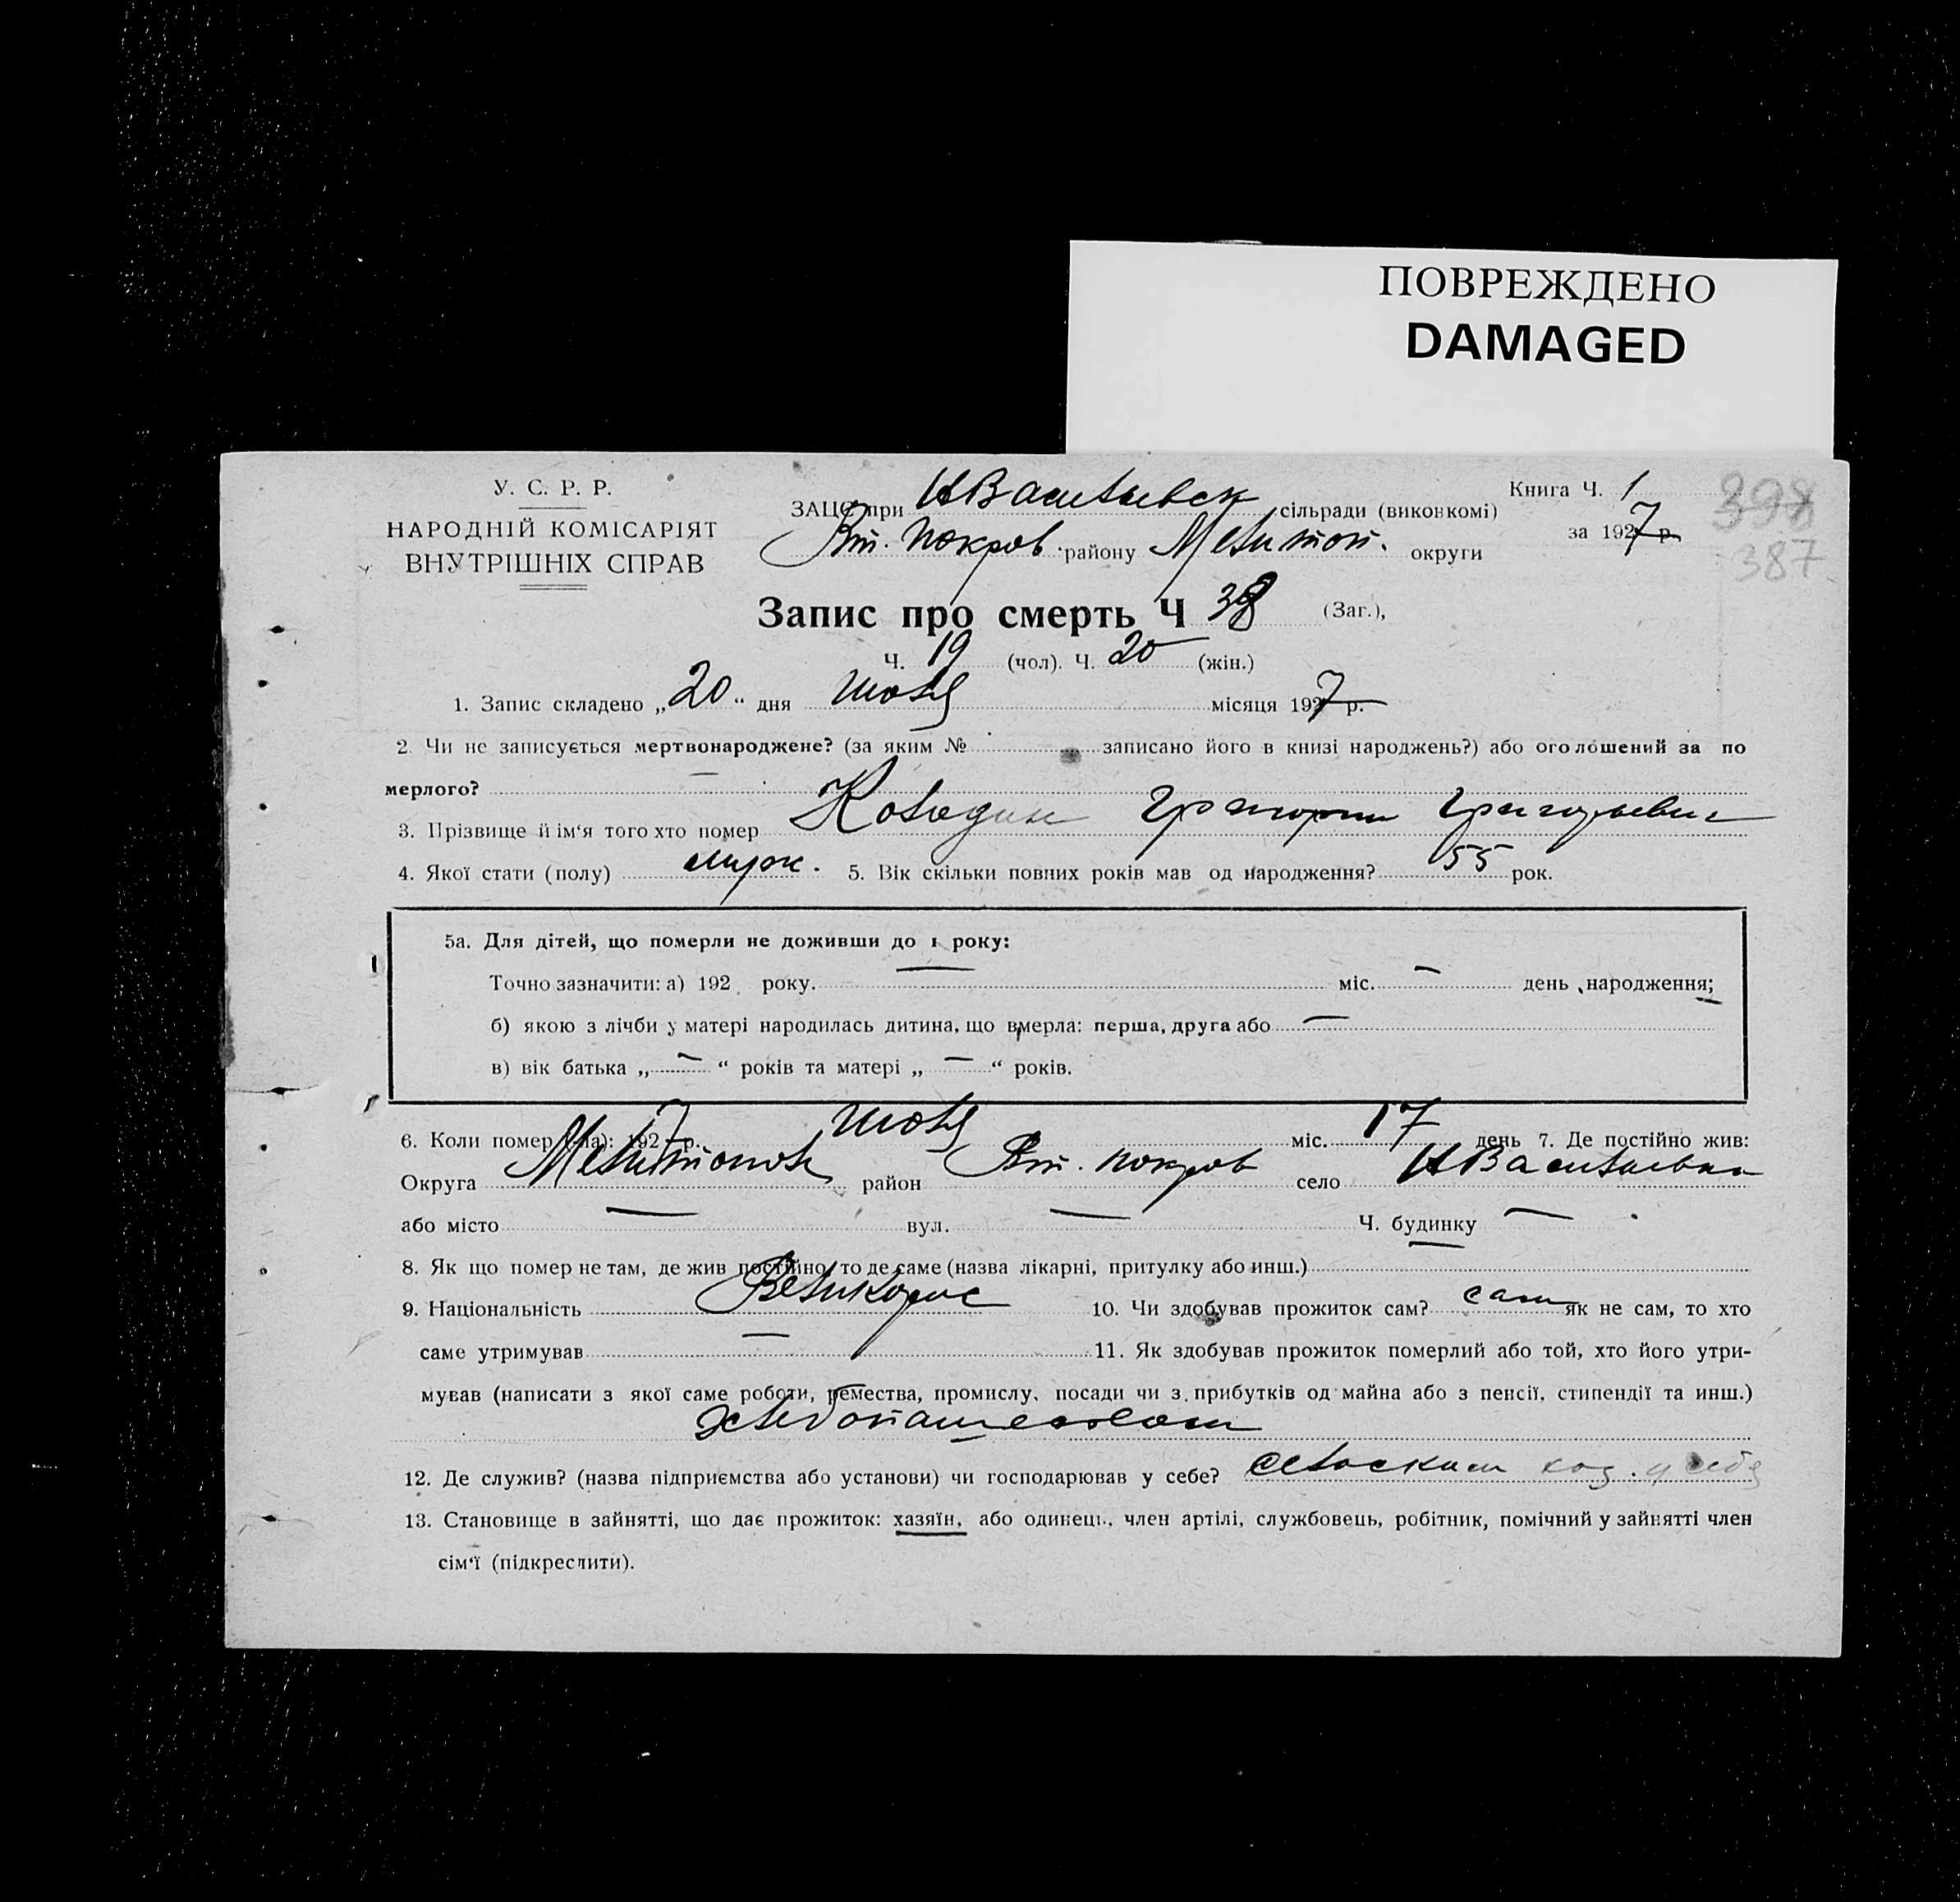 ПОВРЕЖДЕНО
DAMAGED
У. С. Р. Р.
НАРОДНІЙ КОМІСАРІЯТ
ВНУТРІШНІХ СПРАВ
ЗАЦС при НВасильевск сільради (виконкомі)
Вт. Покров. району Мелитоп. округи
Книга Ч. 1
за 1927 р.
398
387
Запис про смерть Ч 38 (Заг.),
Ч. 19 (чол). Ч. 20 (жін.)
1. Запис складено „20“ дня июля місяця 1927 р.
2. Чи не записується мертвонароджене? (за яким № записано його в книзі народжень?) або оголошений за по
мерлого? —
3. Прізвище й ім‘я того хто помер Колодин Григорий Григорьевич
4. Якої стати (полу) мужс. 5. Вік скільки повних років мав од народження? 55 рок.
5а. Для дітей, що померли не доживши до 1 року:
Точно зазначити: а) 192 року. — міс. — день народження;
б) якою з лічби у матері народилась дитина, що вмерла: перша, друга або —
в) вік батька „—“ років та матері „—“ років.
6. Коли помер (ла): 1927 р. июля міс. 17 день 7. Де постійно жив:
Округа Мелитополь район Вт. Покров село НВасильевка
або місто — вул. — Ч. будинку —
8. Як що помер не там, де жив постійно, то де саме (назва лікарні, притулку або инш.) —
9. Національність Великорус 10. Чи здобував прожиток сам? сам як не сам, то хто
саме утримував — 11. Як здобував прожиток померлий або той, хто його утри-
мував (написати з якої саме роботи, ремества, промислу, посади чи з прибутків од майна або з пенсії, стипендії та инш.)
хлебопашеством
12. Де служив? (назва підприємства або установи) чи господарював у себе? сельским хоз. у себя
13. Становище в зайнятті, що дає прожиток: хазяїн, або одинець, член артілі, службовець, робітник, помічний у зайнятті член
сім‘ї (підкреслити).